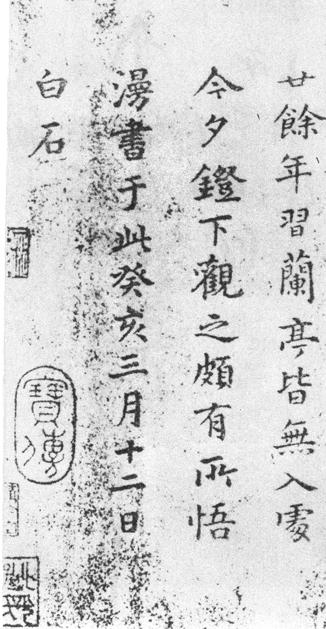 廿餘年習蘭亭皆無入處
今夕鐙下觀之頗有所悟
漫書于此癸亥三月十二日
白石
寶傳